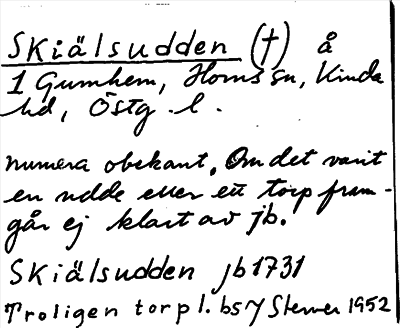 Skiälsudden (†) å
1 Gumhem, Horns sn, Kinda
hd, Östg. l.
numera obekant. Om det varit
en udde eller ett torp fram-
går ej klart av jb.
Skiälsudden jb 1731
Troligen torp l. bs
Sterner 1952